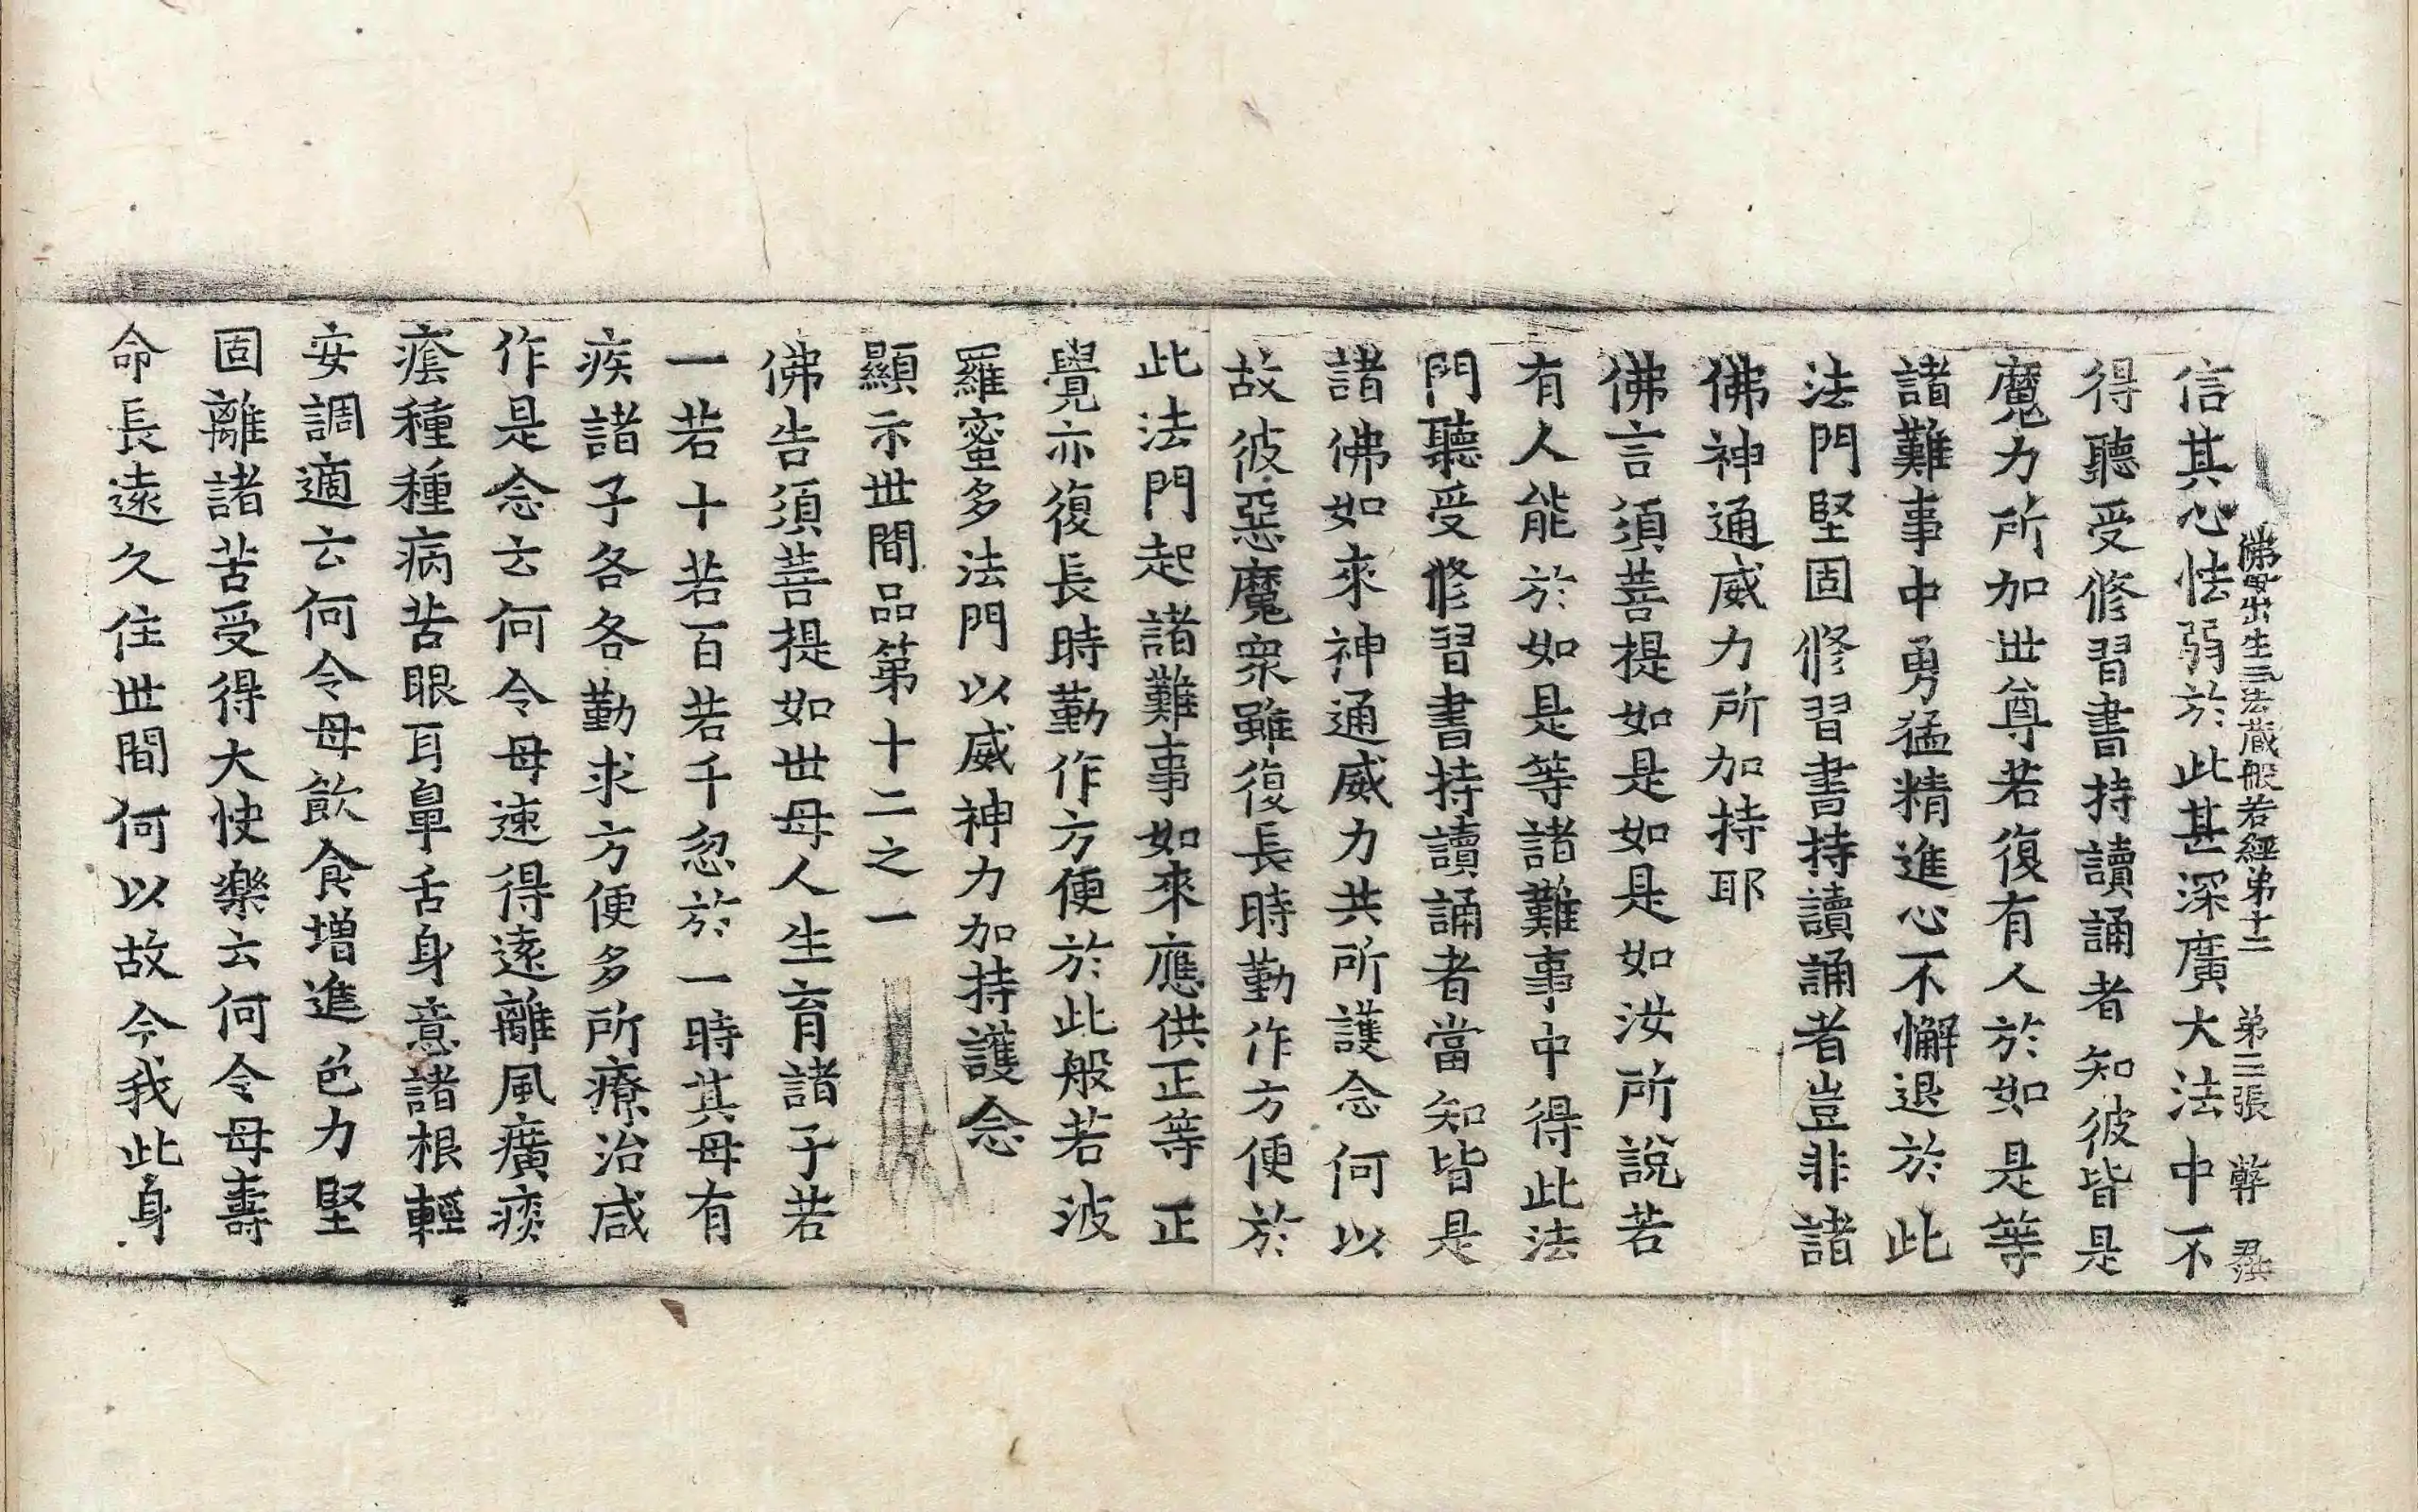 佛母出生三法藏般若經第十二 第二張 鞸
信其心怯弱於此甚深廣大法中不
得聽受修習書持讀誦者知彼皆是
魔力所加世尊若復有人於如是等
諸難事中勇猛精進心不懈退於此
法門堅固修習書持讀誦者豈非諸
佛神通威力所加持耶
佛言須菩提如是如是如汝所說若
有人能於如是等諸難事中得此法
門聽受修習書持讀誦者當知皆是
諸佛如來神通威力共所護念何以
故彼惡魔眾雖復長時勤作方便於
此法門起諸難事如來應供正等正
覺亦復長時勤作方便於此般若波
羅蜜多法門以威神力加持護念
顯示世間品第十二之一
佛告須菩提如世母人生育諸子若
一若十若百若千忽於一時其母有
疾諸子各各勤求方便多所療治咸
作是念云何令母速得遠離風癀痰
癊種種病苦眼耳鼻舌身意諸根輕
安調適云何令母飲食增進色力堅
固離諸苦受得大快樂云何令母壽
命長遠久住世間何以故今我此身